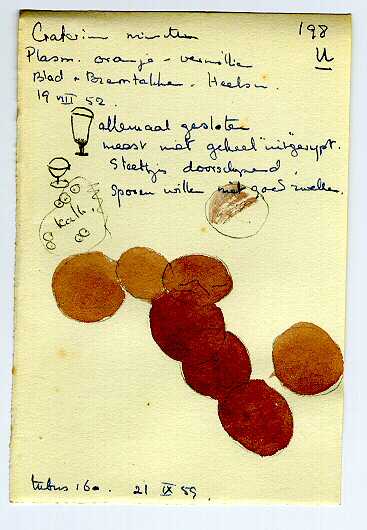 Craterium minutum
198
Plasm. oranje - vermillion
U
Blad + Braamtakken. Heelsum.
19 VIII 52.
allemaal gesloten
meest niet geheel "uitgerypt".
Steeltjes doorschynend.
sporen willen niet goed zwellen.
Kalk.
tubus 160. 21 IX 59.